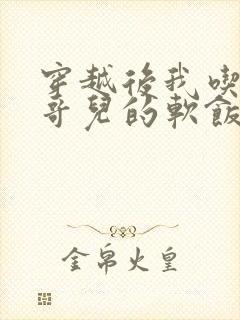 穿越後我喫
哥兒的軟飯
金帛火皇